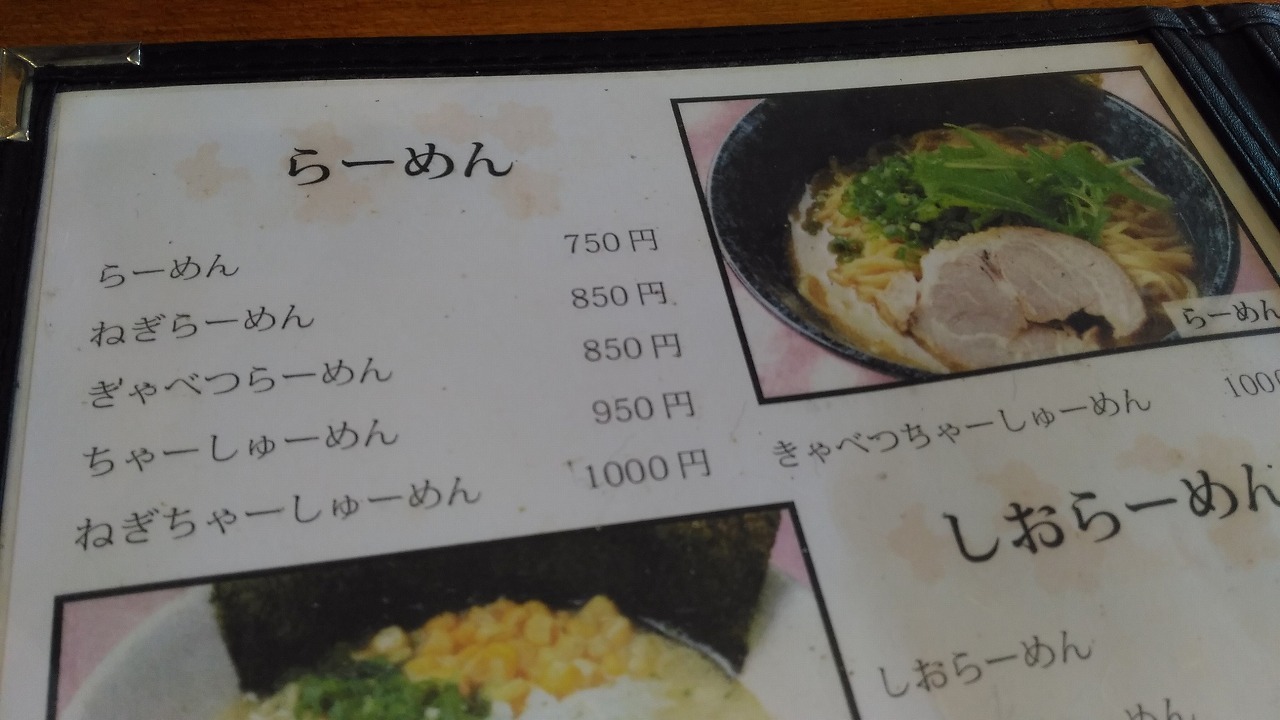 らーめん
らーめん 750円
ねぎらーめん 850円
きゃべつらーめん 850円
ちゃーしゅーめん 950円
ねぎちゃーしゅーめん 1000円
らーめん
きゃべつちゃーしゅーめん 1000
しおらーめん
しおらーめん
めん